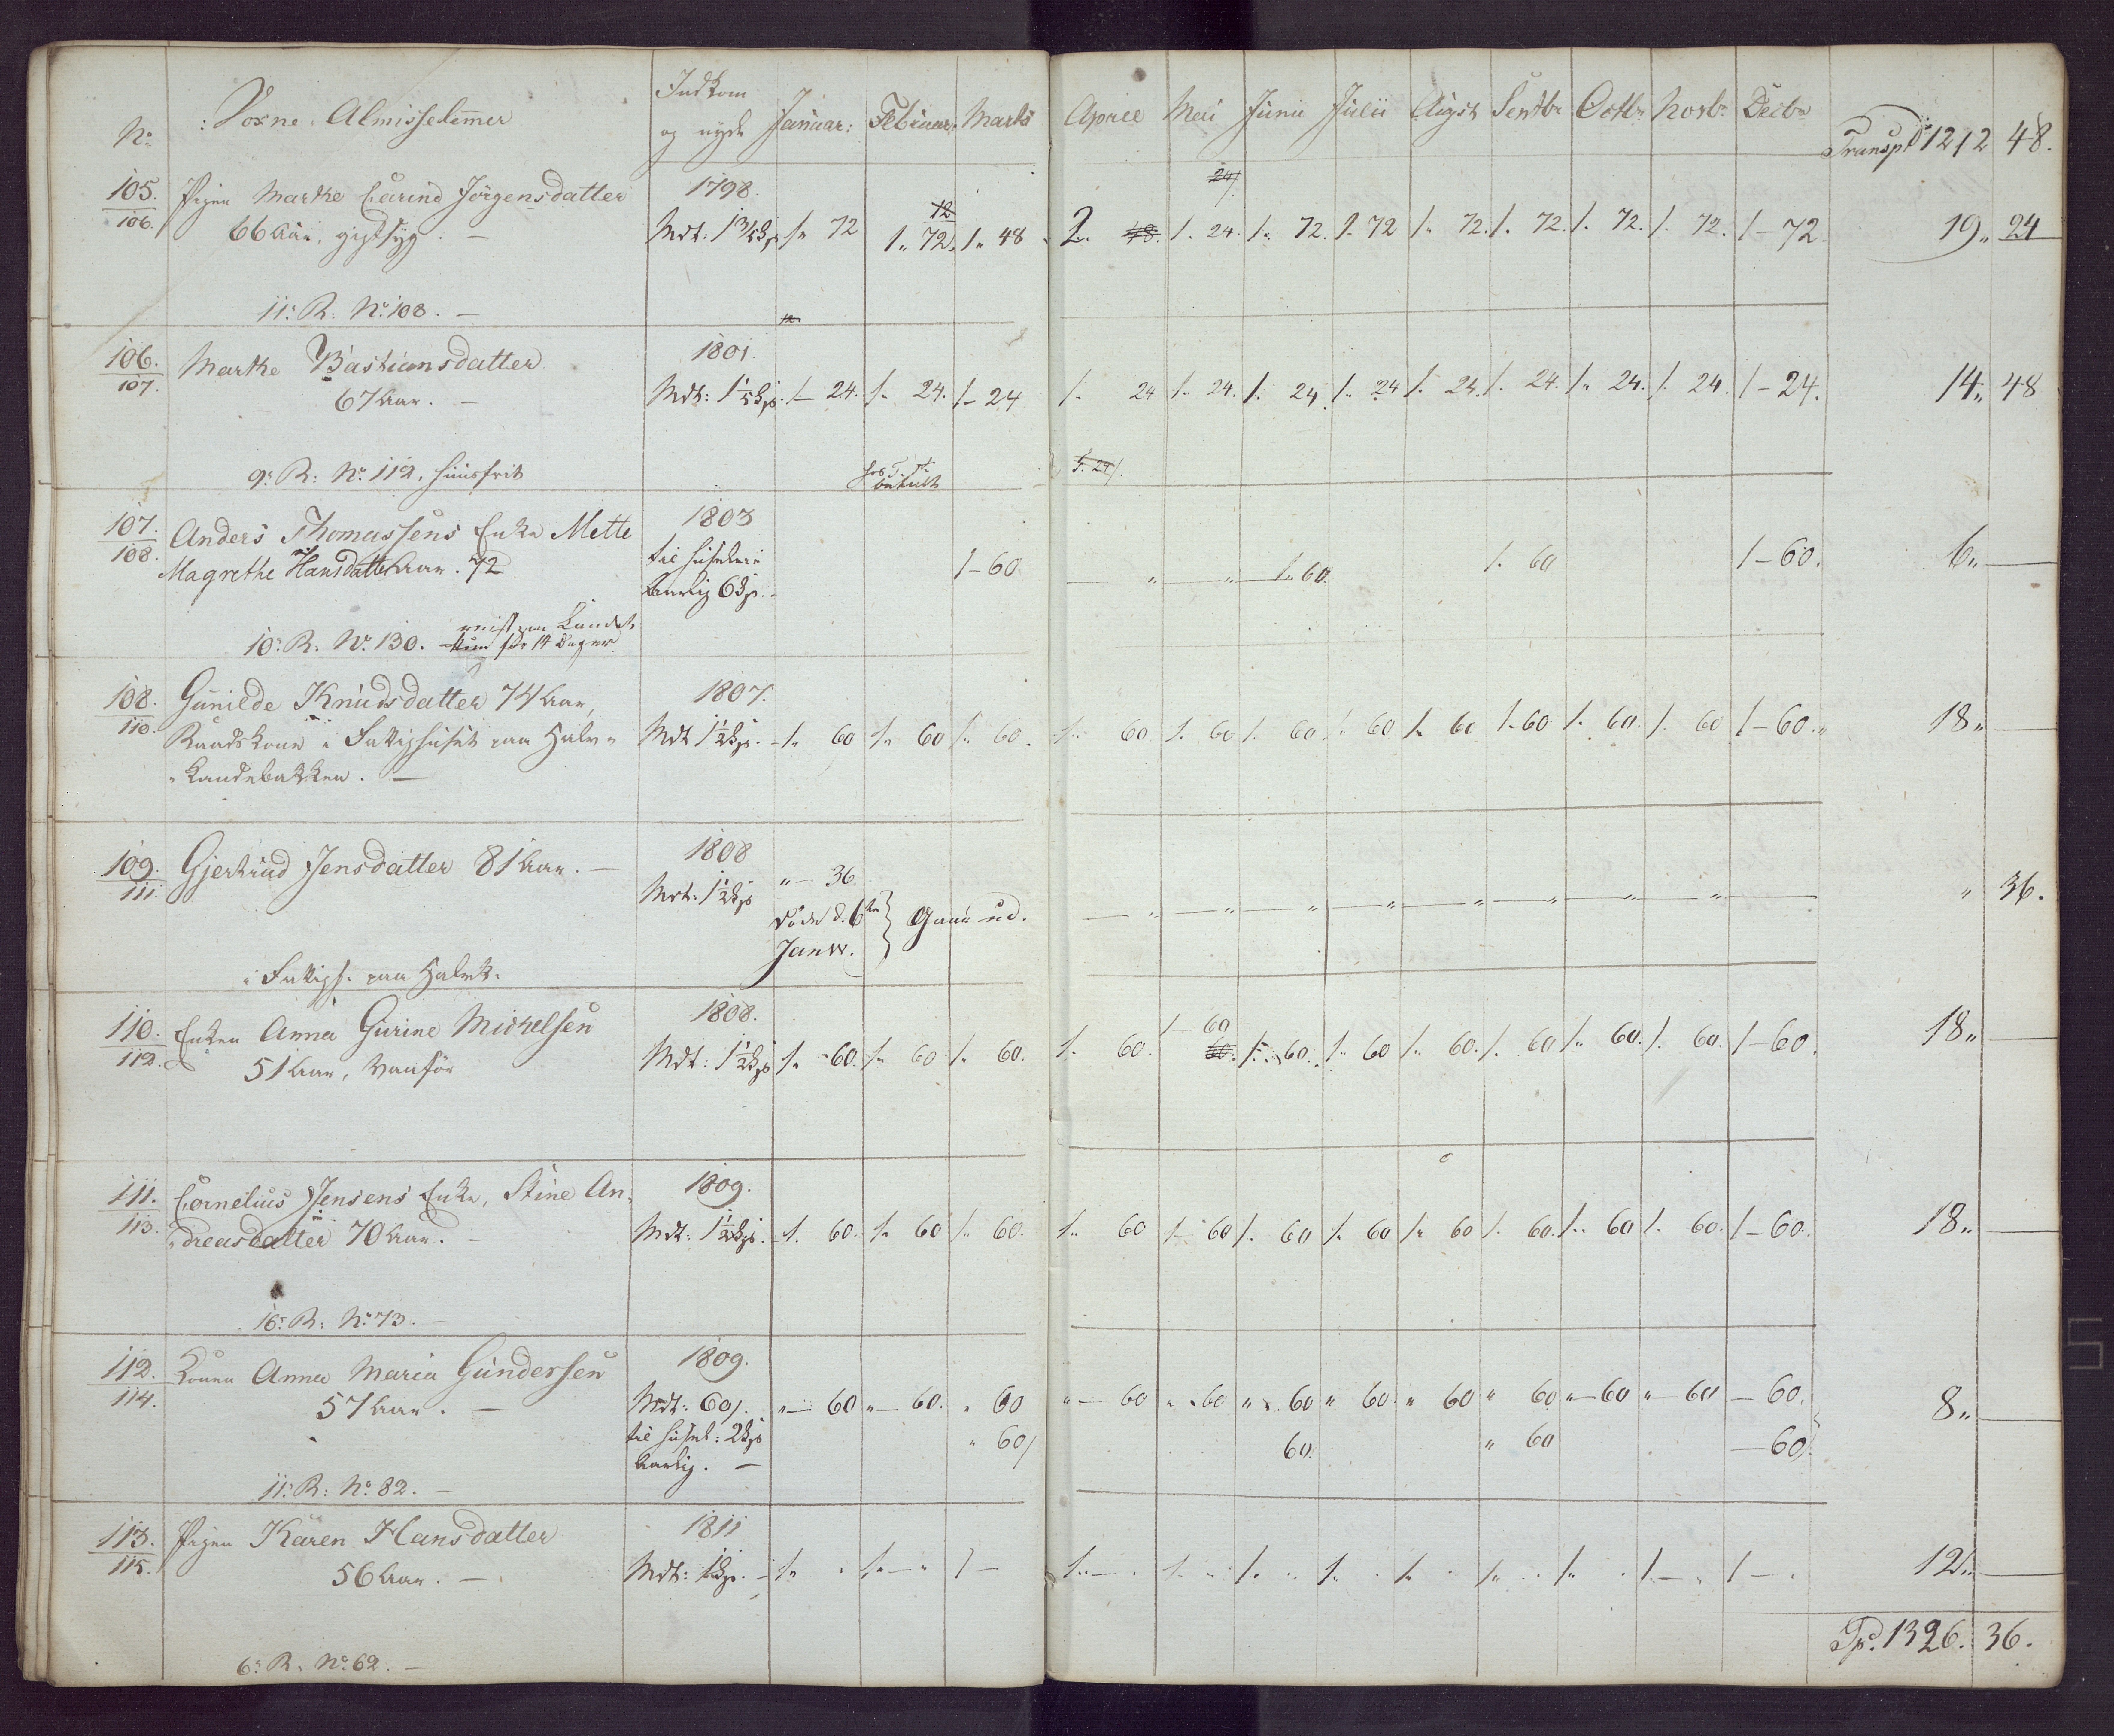 No.
Voxne Almisselemmer
Indkom og nyde
Januar: Februar: Marts
April Mai Junii Julii Augst Septbr Octbr Novbr Decbr
Transpt 1212 48.
105. Pigen Marthe Carine Jörgensdatter 1798. 12 24/
106. 66 Aar, gigtsyg. — Mdt: 1 3/4 1 " 72 1 " 72 1 " 48 2. 48. 1. 24. 1 " 72. 1. 72 1 " 72. 1. 72. 1. 72. 1. 72. 1 – 72. 19 " 24
11: R: No. 108. — 12
106. Marthe Bastiansdatter 1801.
107. 67 Aar. — Mdt: 1 – 24. 1 " 24. 1 – 24 1 " 24 1 " 24. 1. 24. 1 " 24 1. 24. 1. 24. 1 " 24. 1. 24. 1 – 24. 14 " 48
9: R: No. 112, huusfrit 1. 24/.
107. Anders Thomassens Enke Mette 1803
108. Magrethe Hansdatter Aar. 72 til Huusleie 1 – 60 — " — " — 1 " 60. 1. 60 1 – 60. 6 " —
Aarlig 6
10: R: No. 130. reist paa Landet for 14 Dager
108. Gunilde Knudsdatter 74 Aar, 1807.
110. i Fattighuset paa Halv= Mdt 1 1/2 1 " 60 1 " 60 1 " 60. 1 " 60. 1. 60 1. 60 1. 60 1 " 60 1. 60 1 " 60. 1. 60 1 – 60. 18 " —
=Kandebakken. —
109. Gjertrud Jensdatter 81 Aar. — 1808
111. Mdt: 1 1/2 " — 36 — " — " — " — " — " — " — " — " — " 36.
döde d. 6te Janur. } Gaaer ud.
i Fattigh. paa Halvk.
110. Enken Anna Gurine Michelsen 1808. 1 – 60
112. 51 Aar, vanför Mdt: 1 1/2 1 " 60. 1 " 60 1 " 60. 1. 60. 60. 1 " 60. 1 " 60 1 " 60. 1. 60 1 " 60. 1. 60. 1 – 60. 18 " —
111. Cornelius Jensens Enke, Stine An= 1809.
113. =dreasdatter 70 Aar. — Mdt: 1 1/2 1. 60. 1 " 60 1 " 60. 1 " 60 1 – 60 1. 60 1. 60 1 " 60 1. 60. 1 " 60 1. 60. 1 – 60. 18 " —
16: R: No. 73. —
112. Konen Anna Maria Gundersen 1809.
114. 57 Aar. — Mdt: 60/. " — 60 " — 60. " 60 " — 60 " 60 " 60 " 60. " 60 " 60 " — 60 " 60 — 60. 8 " —
til Huusl: 2 Aarlig. — " 60/ 60. " 60 — 60/.
11: R: No. 82. —
113. Pigen Karen Hansdatter 1811
115. 56 Aar. — Mdt: 1 — 1 " 1 — " 1 — 1 " — 1 " 1 " 1 " 1 " 1 " 1 " 1 — 1 — 12 " —
6: R: No. 62. —
Tp. 1326. 36.